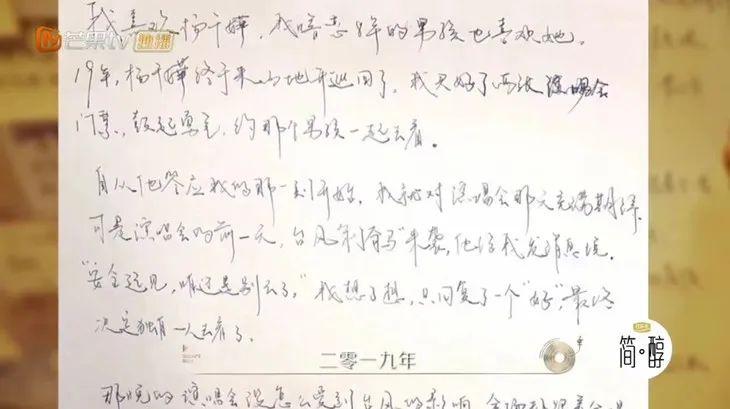 芒果tv 独播
我喜欢杨千嬅,我暗恋8年的男孩也喜欢她。
19年,杨千嬅终于来内地开巡回了,我买好了两张演唱会
门票,鼓起勇气,约那个男孩一起去看。
自从他答应我的那一刻开始,我就对演唱会那天充满期待,
可是演唱会的前一天,台风“利奇马”来袭,他给我发消息说,
“安全起见,咱还是别去了。”我想了想,只回复了一个“好”,最终
决定独自一人去看了。
二零一九年
简·醇
那晚的演唱会没怎么受到台风的影响,全场